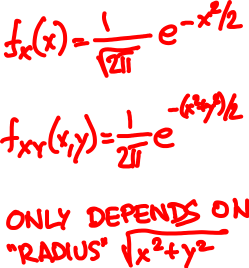 f_X(x) = 1/√(2π) e^(-x²/2)
f_XY(x,y) = 1/2π e^(-(x²+y²)/2)
ONLY DEPENDS ON
"RADIUS" √(x²+y²)